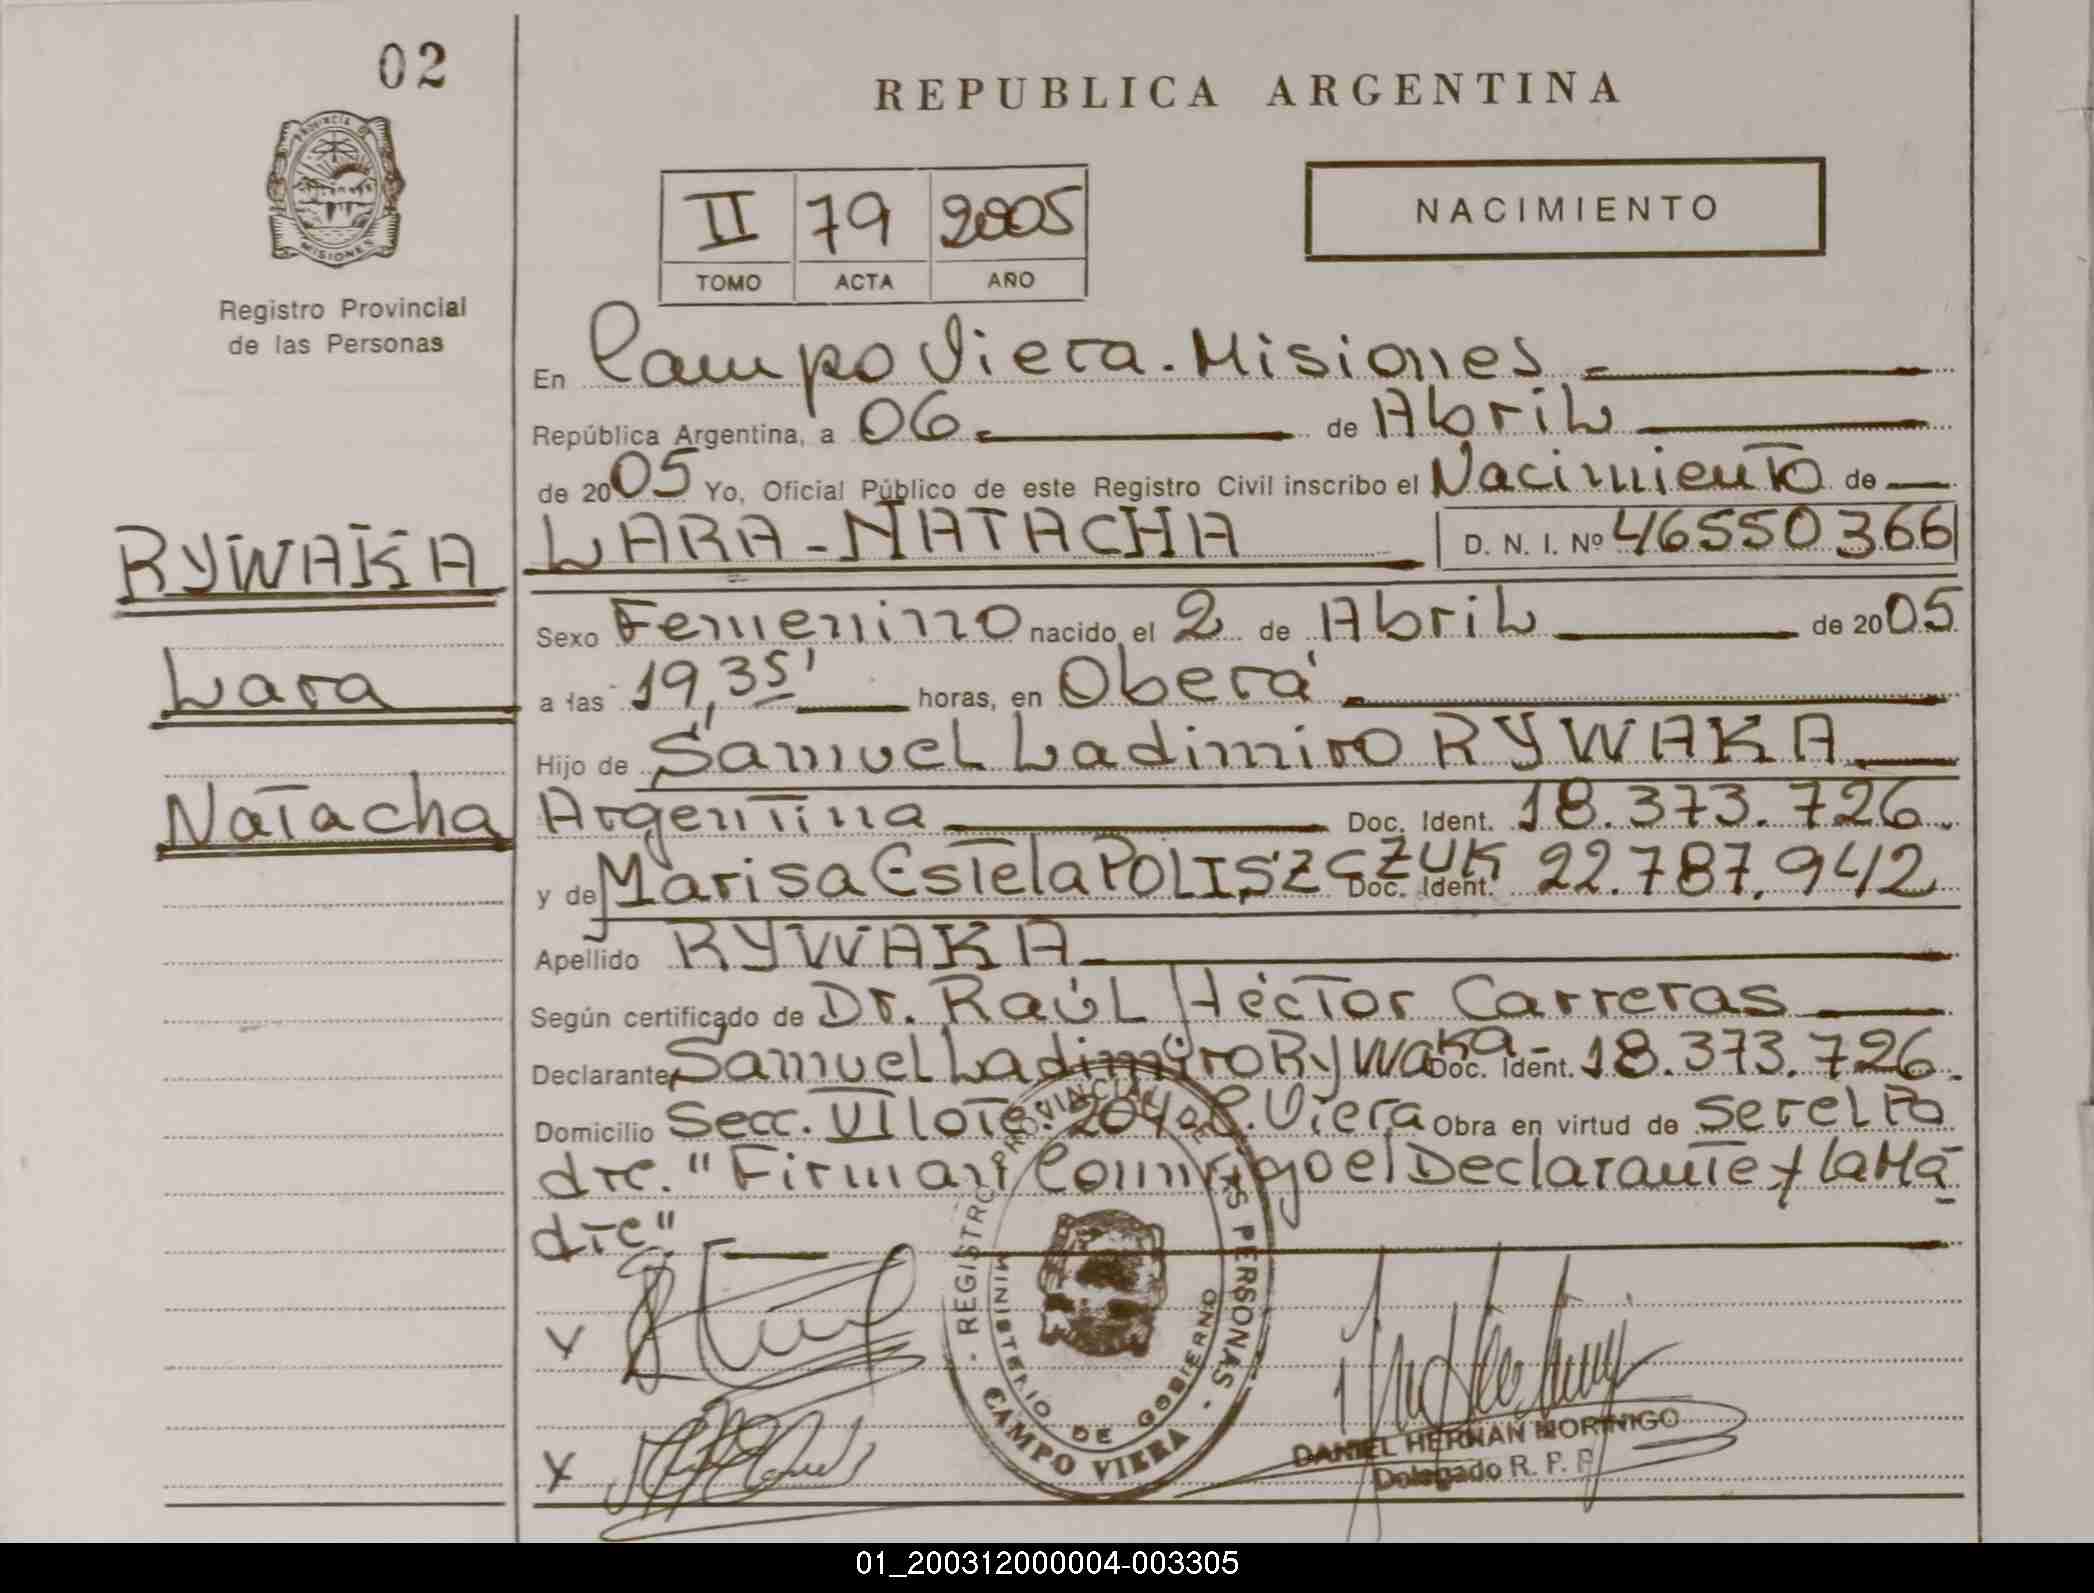 02
PROVINCIA DE
MISIONES
Registro Provincial
de las Personas
REPUBLICA ARGENTINA
II 79 2005
TOMO ACTA AÑO
NACIMIENTO
En Campo Viera. Misiones
República Argentina, a 06 de Abril
de 2005 Yo, Oficial Público de este Registro Civil inscribo el Nacimiento de
RYWAKA LARA - NATACHA D. N. I. Nº 46550366
Sexo Femenino nacido el 2 de Abril de 2005
Lara a las 19,35' horas, en Oberá
Hijo de Samuel Ladimiro RYWAKA
Natacha Argentina Doc. Ident. 18.373.726.
y de Marisa Estela POLISZCZUK Doc. Ident. 22.787.942
Apellido RYWAKA
Según certificado de Dr. Raúl Héctor Carreras
Declarante Samuel Ladimiro Rywaka - Doc. Ident. 18.373.726.
Domicilio Secc. VI lote. 204. C. Viera Obra en virtud de ser el Pa
dre. "Firman Conmigo el Declarante y la Ma
dre"
- REGISTRO PROVINCIAL DE LAS PERSONAS -
MINISTERIO DE GOBIERNO
CAMPO VIERA
DANIEL HERNAN MORINIGO
Delegado R. P. P.
01_200312000004-003305